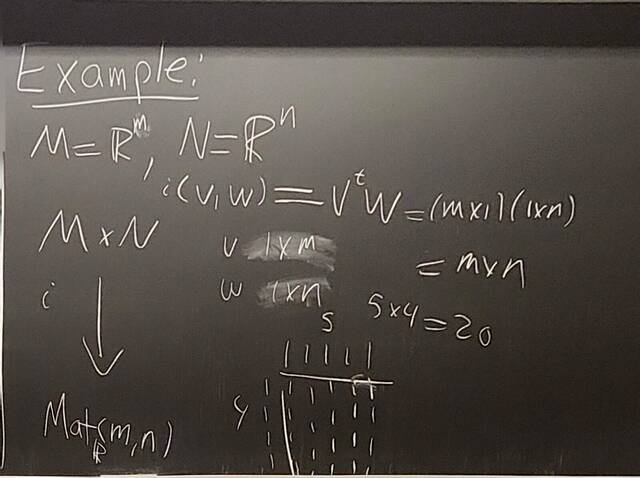 Example:
M = ℝᵐ, N = ℝⁿ
i(v, w) = vᵗw = (m×1)(1×n)
M × N
v 1×m
= m×n
i
w 1×n
5×4 = 20
5
4
Mat_ℝ(m, n)